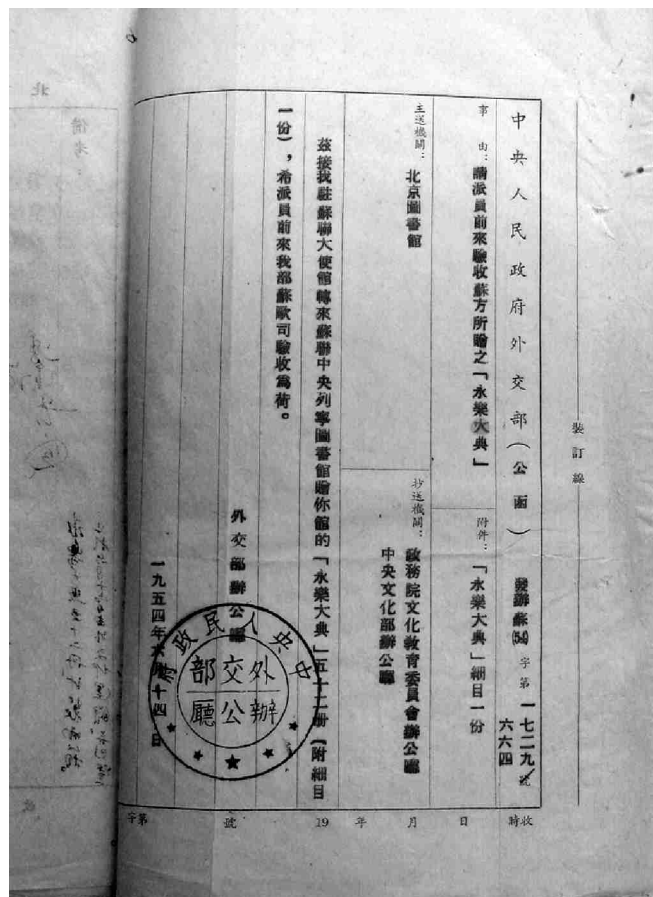 裝訂線
中央人民政府外交部（公函）
發辦蘇(54)字第一七二九號
六六四
事由：請派員前來驗收蘇方所贈之「永樂大典」
附件：「永樂大典」細目一份
主送機關：北京圖書館
抄送機關：政務院文化教育委員會辦公廳
中央文化部辦公廳
茲接我駐蘇聯大使館轉來蘇聯中央列寧圖書館贈你館的「永樂大典」五十二冊（附細目
一份），希派員前來我部蘇歐司驗收爲荷。
外交部辦公廳
一九五四年六月十四日
中央人民政府
外交部
辦公廳
收時
日
月
年
19
號
字第
北
備考：